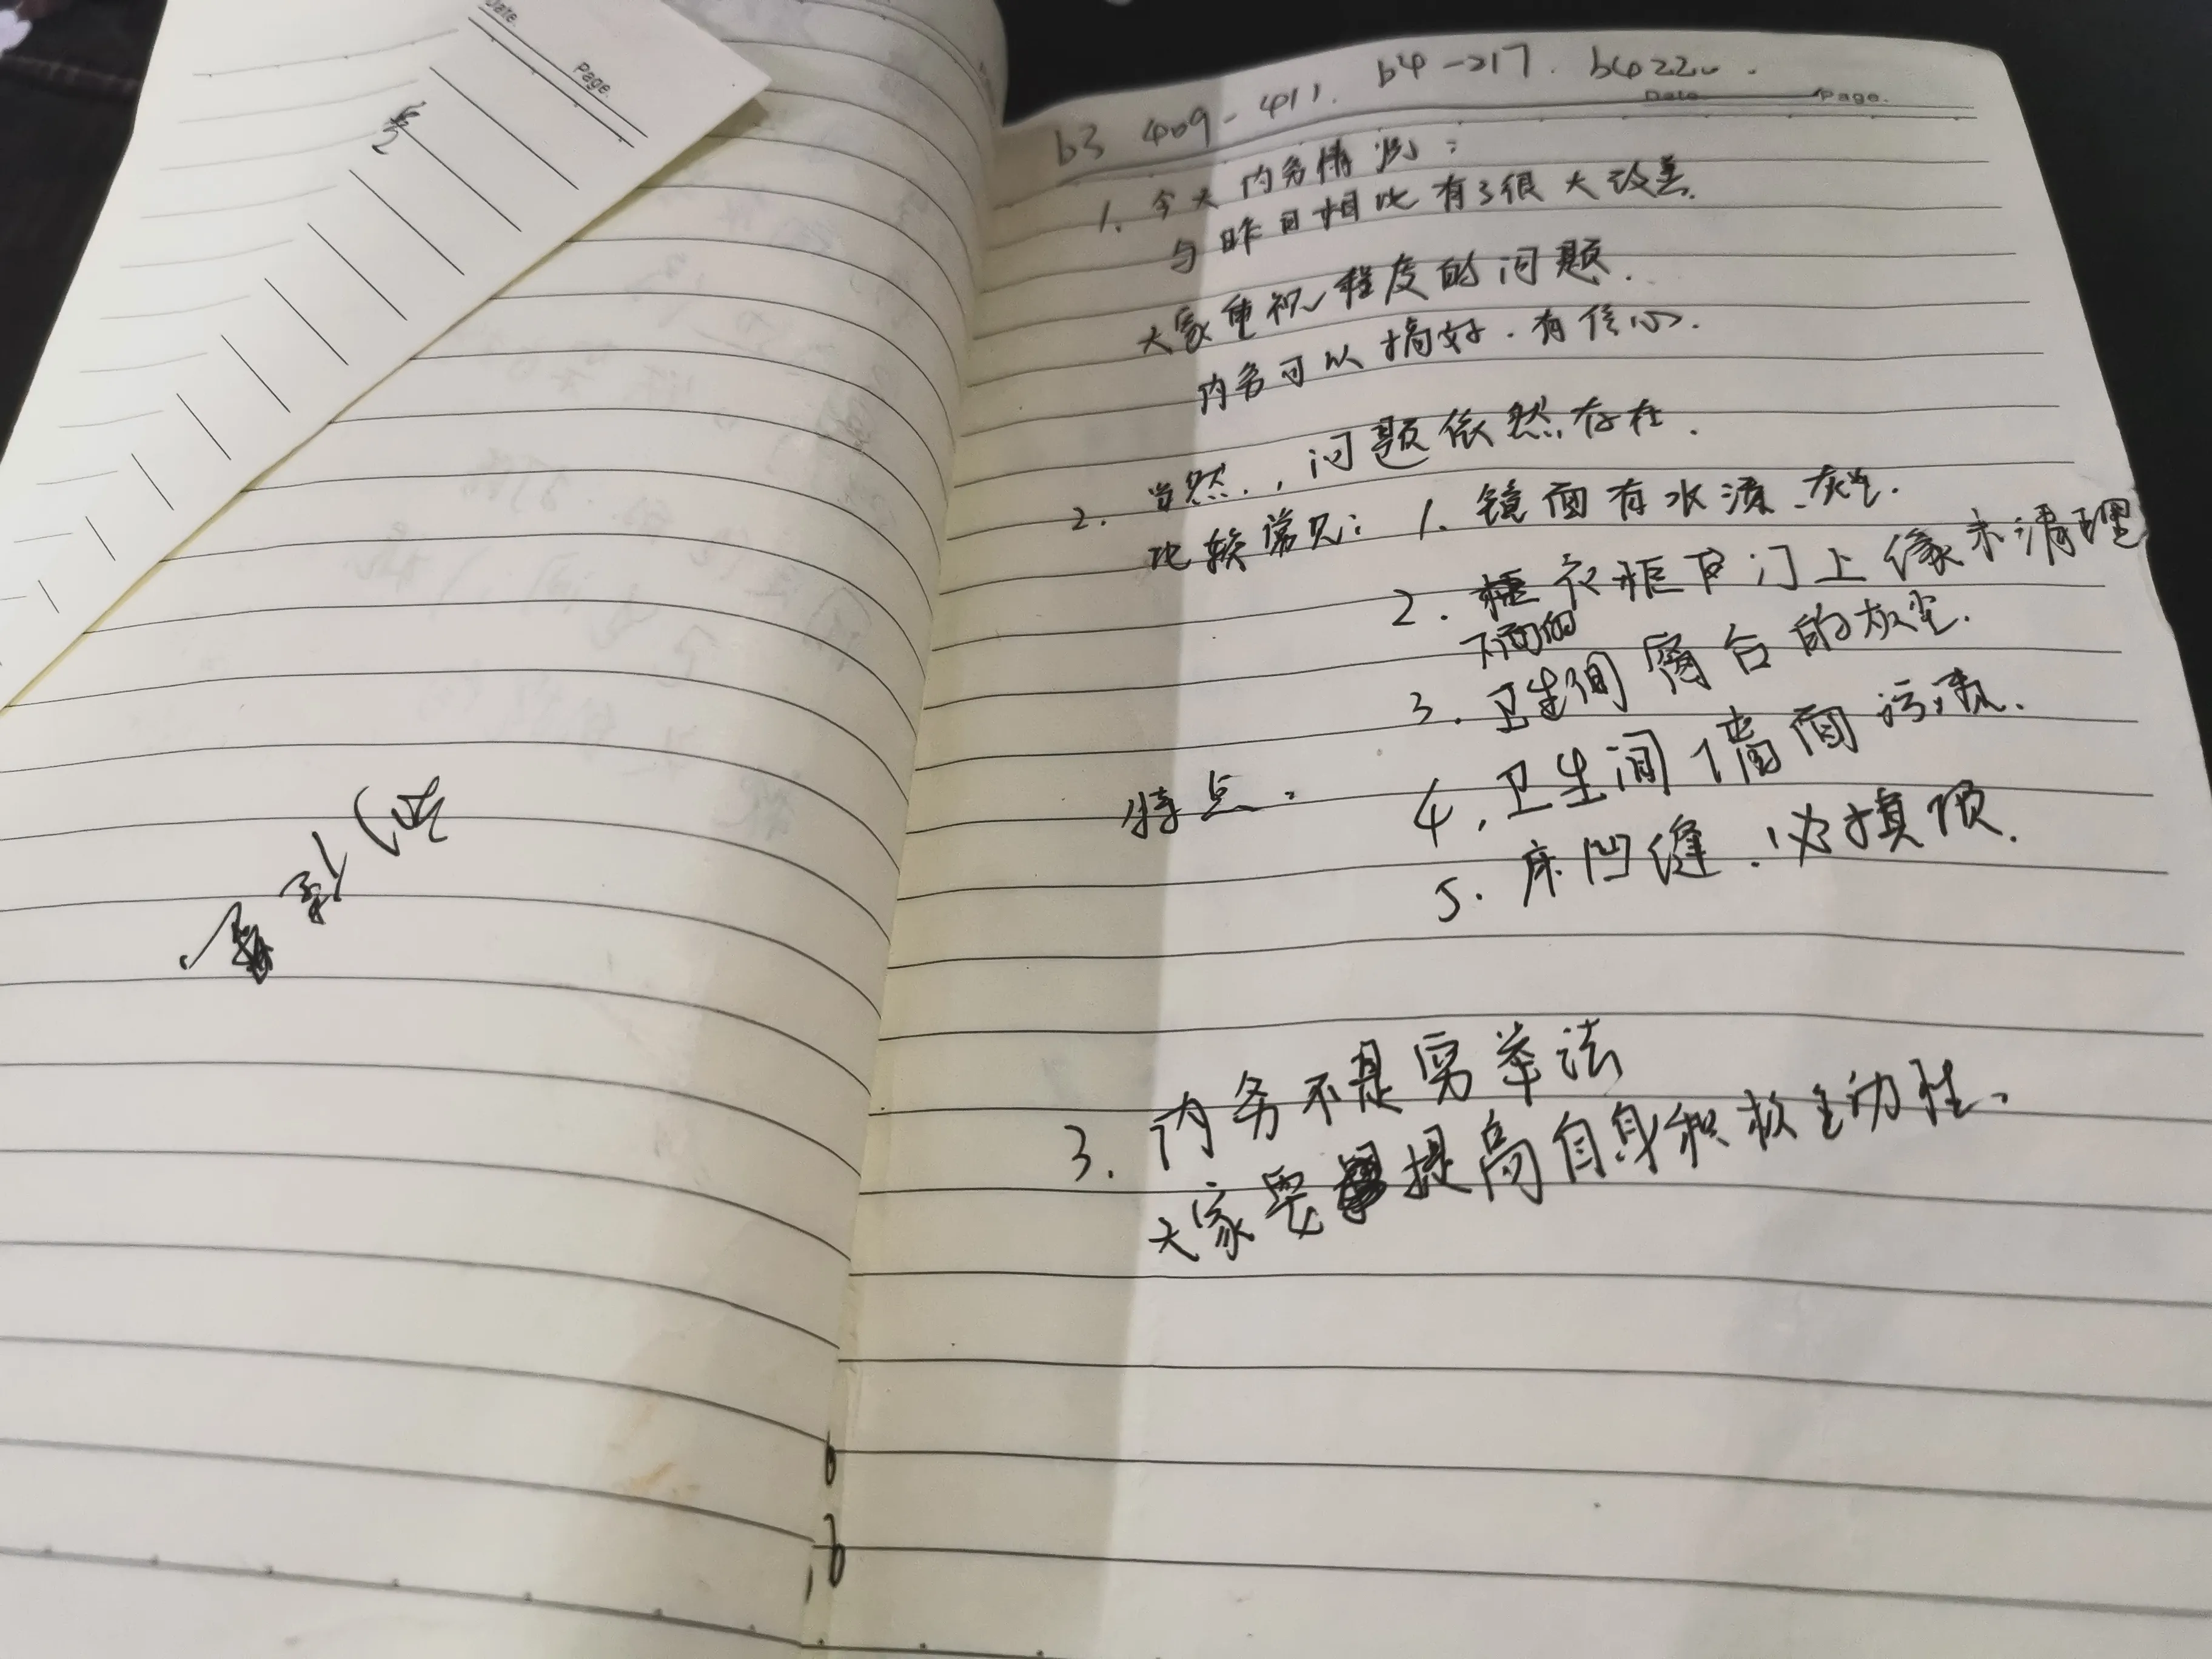 Date.
Page.
b3 409-411. b4-217. b4220.
Date Page.
1. 今天内务情况:
与昨日相比有了很大改善.
大家重视程度的问题.
内务可以搞好.有信心.
2. 当然.,问题依然存在.
比较常见: 1. 镜面有水渍、灰尘.
2. 衣柜门上缘未清理
下面的
3. 卫生间窗台的灰尘.
特点: 4. 卫生间墙面污渍.
5. 床凹缝.必填项.
3. 内务不是穷举法
大家要提高自身积极主动性.